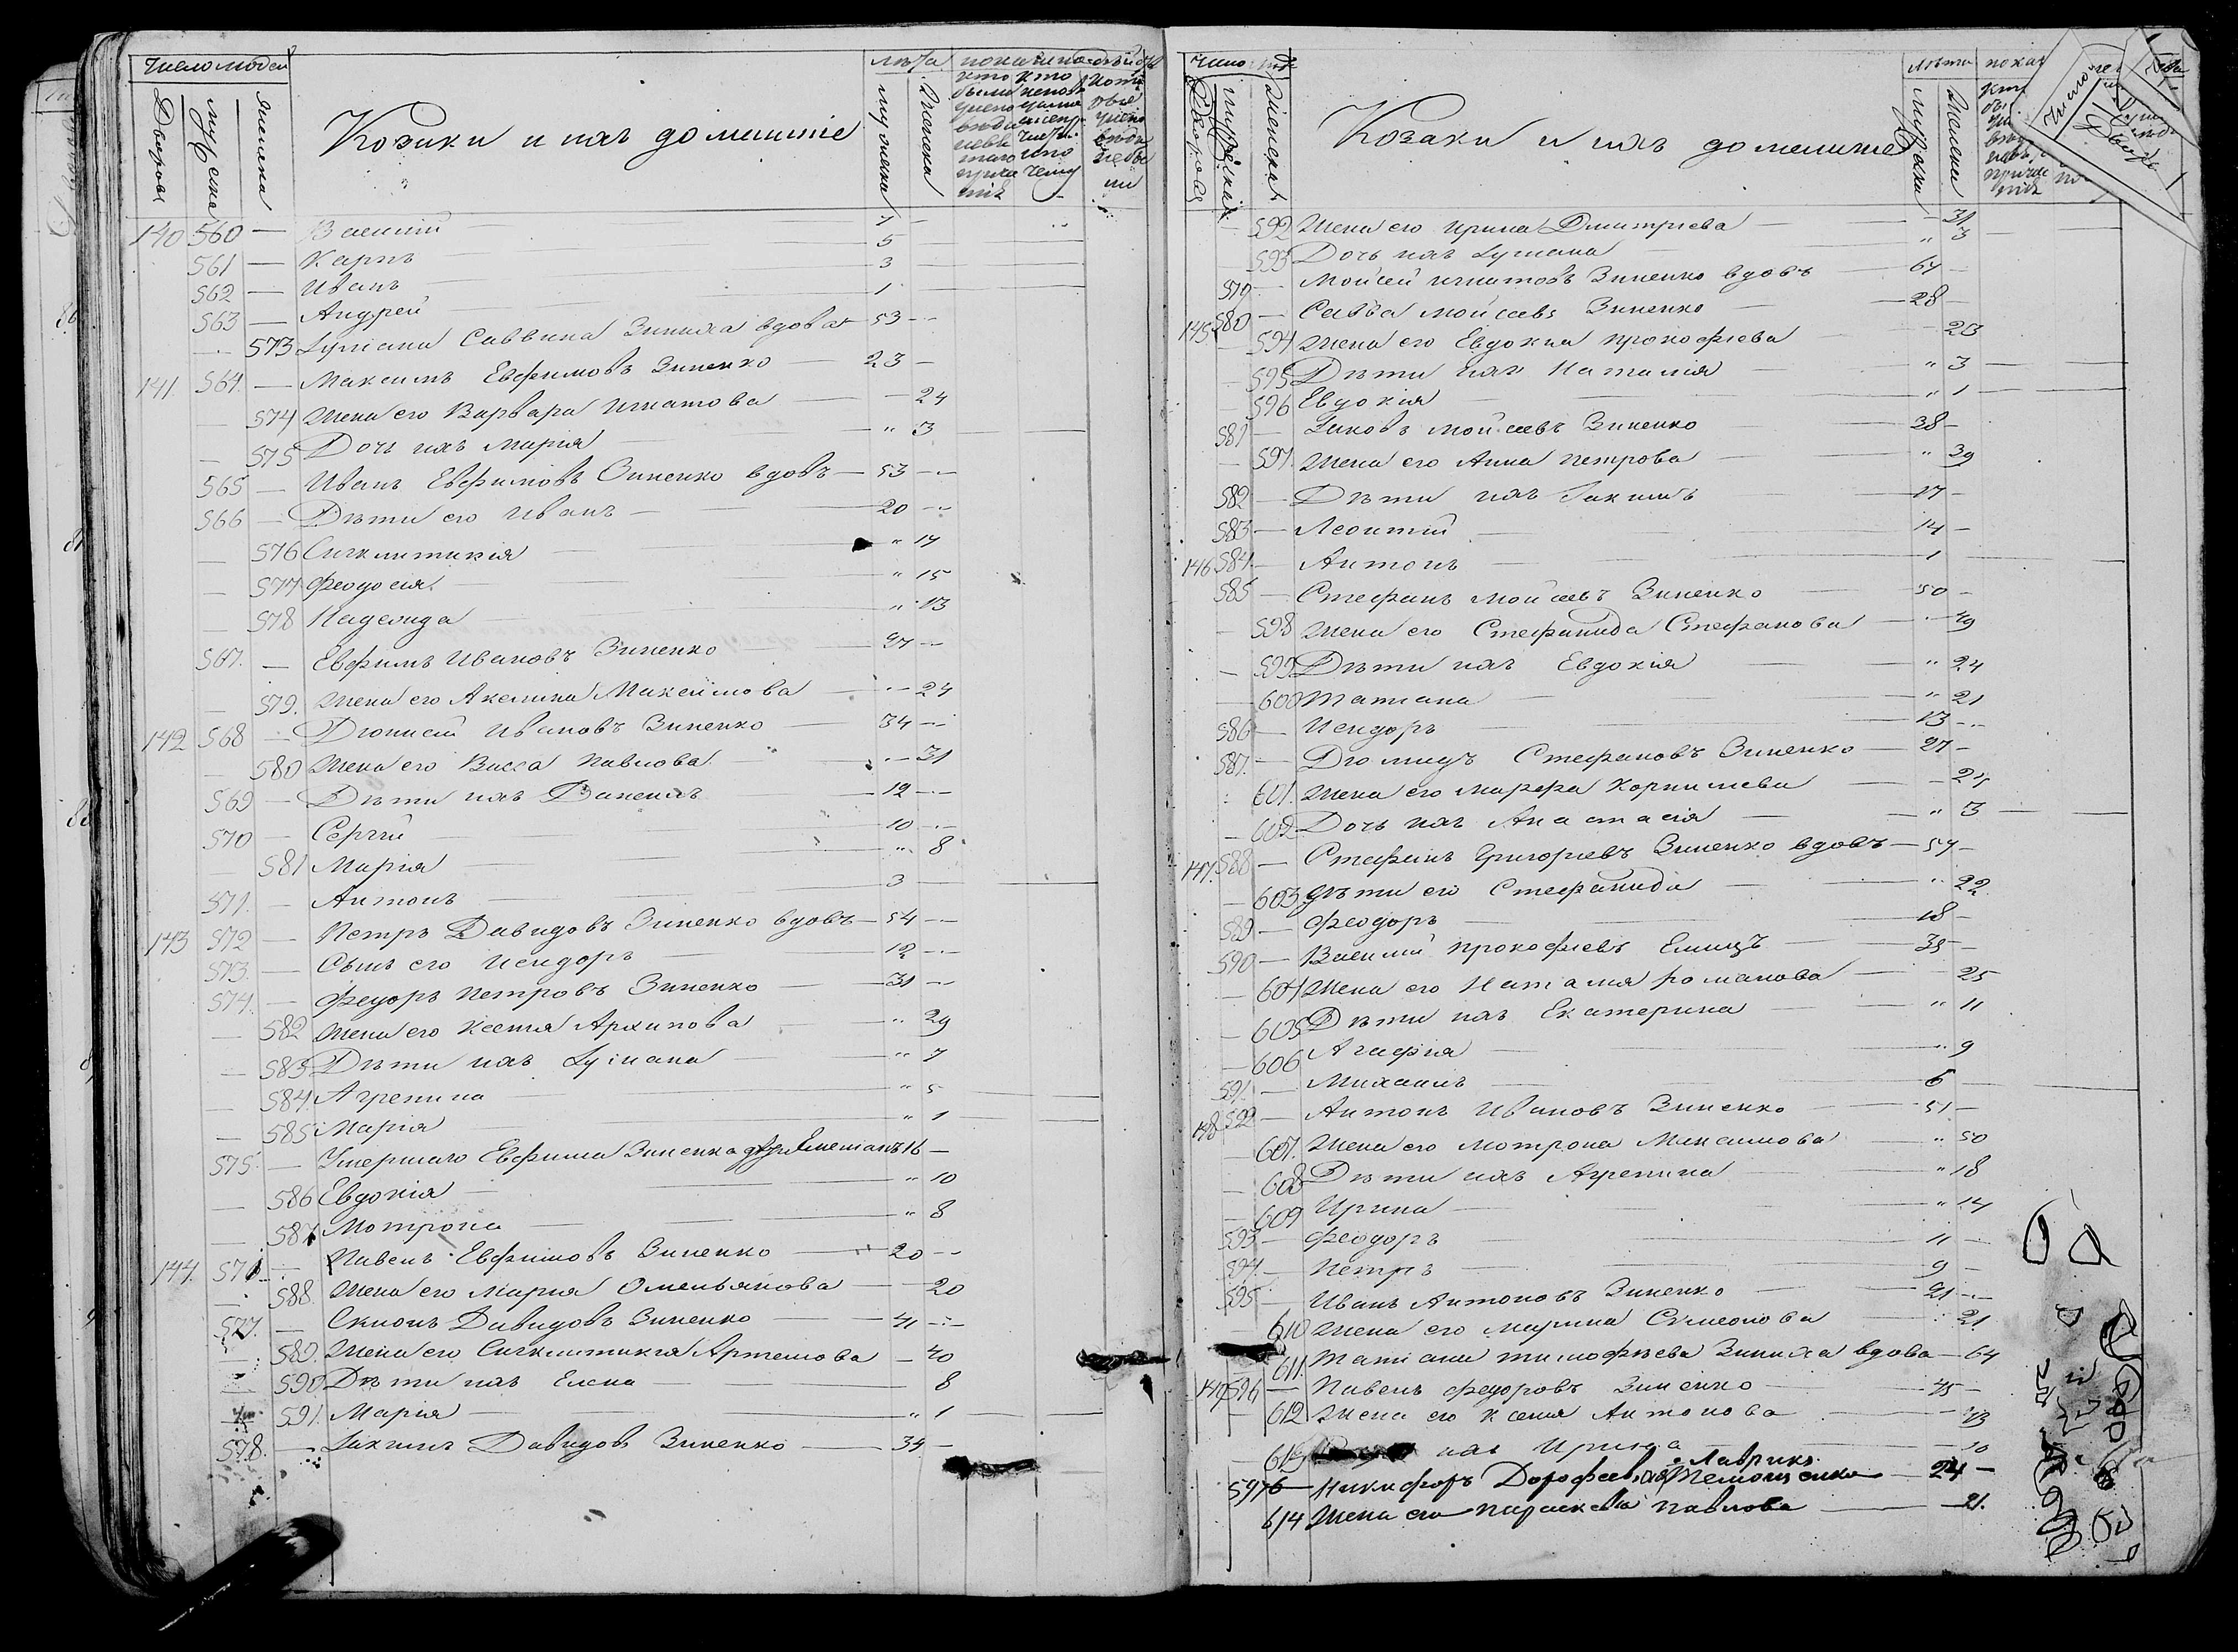 Число людей
Дворовъ
мужеска
женска
Козаки и ихъ домашніе
лѣта
мужеска
женска
140 560 — Василій — 7 —
561 — Карпъ — 5 —
562 — Иванъ — 3 —
563 — Андрей — 1 —
573 Іуліана Саввина Зиниха вдова — 53 —
141. 564. — Максимъ Евфимовъ Зиненко 23 —
574 Жена его Варвара Игнатова — 24
575 Дочь ихъ Марія — " 3
565 — Иванъ Евфимовъ Зиненко вдовъ — 53 —
566 — Дѣти его Иванъ — 20 —
576 Сигклитикія — " 17
577 Феодосія — " 15
578 Надежда — " 13
567. — Евфимъ Ивановъ Зиненко — 27 —
579. Жена его Акелина Максимова — 24
142 568 — Діонисій Ивановъ Зиненко — 34 —
580 Жена его Васса Павлова — 31
569 — Дѣти ихъ Даніилъ — 12 —
570 — Сергій — 10 —
581 Марія — " 8
571. — Антонъ — 3 —
143 572 — Петръ Давидовъ Зиненко вдовъ — 54 —
573. — Сынъ его Исидоръ — 12 —
574. — Федоръ Петровъ Зиненко — 31 —
582 Жена его Ксенія Архипова — " 29
583 Дѣти ихъ Іуліана — " 7
584. Агрепина — " 5
585 Марія — " 1
575. — Умершаго Евфима Зиненка 16 —
586 Евдокія — " 10
587 Мотрона — " 8
144. 576 — Павелъ Евфимовъ Зиненко — 20 —
588. Жена его Марія Омельянова — 20
577. — Симонъ Давидовъ Зиненко — 41 —
589. Жена его Сигклитикія Артемова — 40
590 Дѣти ихъ Елена — 8
591. Марія — " 1
578. — Іакимъ Давидовъ Зиненко — 34 —
Число
Дворовъ
мужеска
женска
Козаки и ихъ домашніе
лѣта
мужеска
женска
592 Жена его Ирина Дмитріева — 31
593 Дочь ихъ Іуліана " 3
579 — Мойсей Игнатовъ Зиненко вдовъ — 67 —
145 580 — Савва Мойсеевъ Зиненко — 28 —
594 Жена его Евдокія Прокофіева — 23
595 Дѣти ихъ Наталія — " 3
596 Евдокія — " 1
581 — Іаковъ Мойсеевъ Зиненко 38 —
597. Жена его Анна Петрова — " 39
582 — Дѣти ихъ Іакимъ — 17 —
583 — Леонтій — 14 —
146 584. — Антонъ — 1
585 — Стефанъ Мойсеевъ Зиненко — 50 —
598 Жена его Стефанида Стефанова — 49
599 Дѣти ихъ Евдокія — " 24
600 Татіана — " 21
586 — Исидоръ — 13 —
587. — Діомидъ Стефановъ Зиненко — 27 —
601. Жена его Марфа Корнилева — 25
602 Дочь ихъ Анастасія — " 3
147. 588 — Стефанъ Григоріевъ Зиненко вдовъ — 57 —
603 Дѣти его Стефанида — 22
589 — Феодоръ — 18 —
590 — Василій Прокофіевъ — 35 —
604 Жена его Наталія Романова — 25
605 Дѣти ихъ Екатерина — " 11
606 Агафія — " 9
591. — Михаилъ — 6
148 592 — Антонъ Ивановъ Зиненко — 51 —
607. Жена его Мотрона Максимова — " 50
608 Дѣти ихъ Агрепина — " 18
609 Ирина — " 14
593 — Феодоръ — 11 —
594. — Петръ — 9 —
595 — Иванъ Антоновъ Зиненко — 21 —
610 Жена его Марина Симеонова — 21
611. Татіана Тимофѣева Зиниха вдова — 64
149 596 — Павелъ Федоровъ Зиненко — 45 —
612 Жена его Ксенія Антонова — 43
613 ихъ Ирина — 10
Лаврикъ
597 — Никифоръ Дорофеевъ — 24 —
614 Жена его Параскева Павлова — 21.